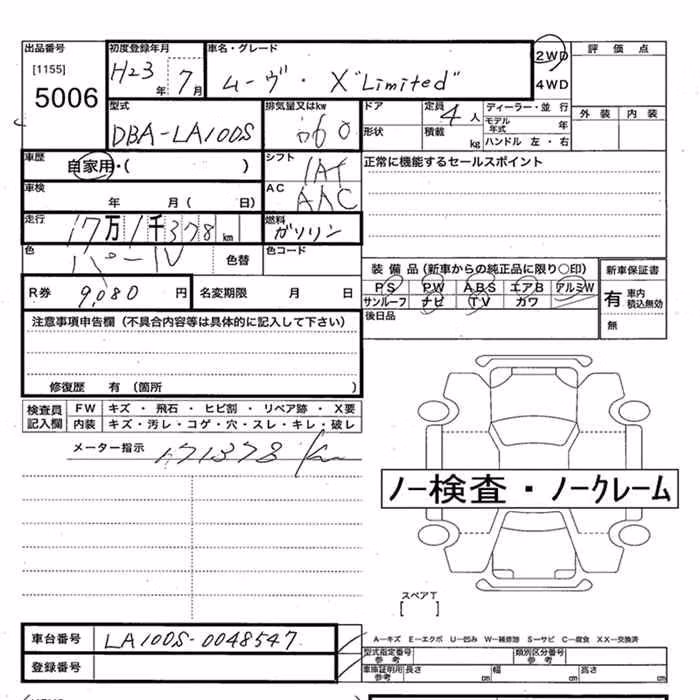 出品番号 初度登録年月 車名・グレード 2WD 評価点
[1155] H23年 7月 ムーヴ・X"Limited" 4WD
5006 外装 内装
型式 排気量又はkw ドア 定員 4人 ディーラー・並行
DBA-LA100S 660 形状 積載 kg モデル年式 年
ハンドル 左・右
車歴 自家用・( ) シフト IAT 正常に機能するセールスポイント
車検 年 月( 日) AC AAC
走行 17万 1千378km 燃料 ガソリン
色 パール 色替 色コード
装備品(新車からの純正品に限り○印) 新車保証書
R券 9,080円 名変期限 月 日 PS PW ABS エアB アルミW 有 車内積込無効
サンルーフ ナビ TV カワ
注意事項申告欄(不具合内容等は具体的に記入して下さい) 後日品 無
修復歴 有(箇所 )
検査員記入欄 FW キズ・飛石・ヒビ割・リペア跡・X要
内装 キズ・汚レ・コゲ・穴・スレ・キレ・破レ
メーター指示 171378 Km
ノー検査・ノークレーム
スペアT
[ ]
車台番号 LA100S-0048547 A－キズ E－エクボ U－凹み W－補修跡 S－サビ C－腐食 XX－交換済
型式指定番号 参考 類別区分番号 参考
登録番号 車庫証明用 参考 長さ cm 幅 cm 高さ cm